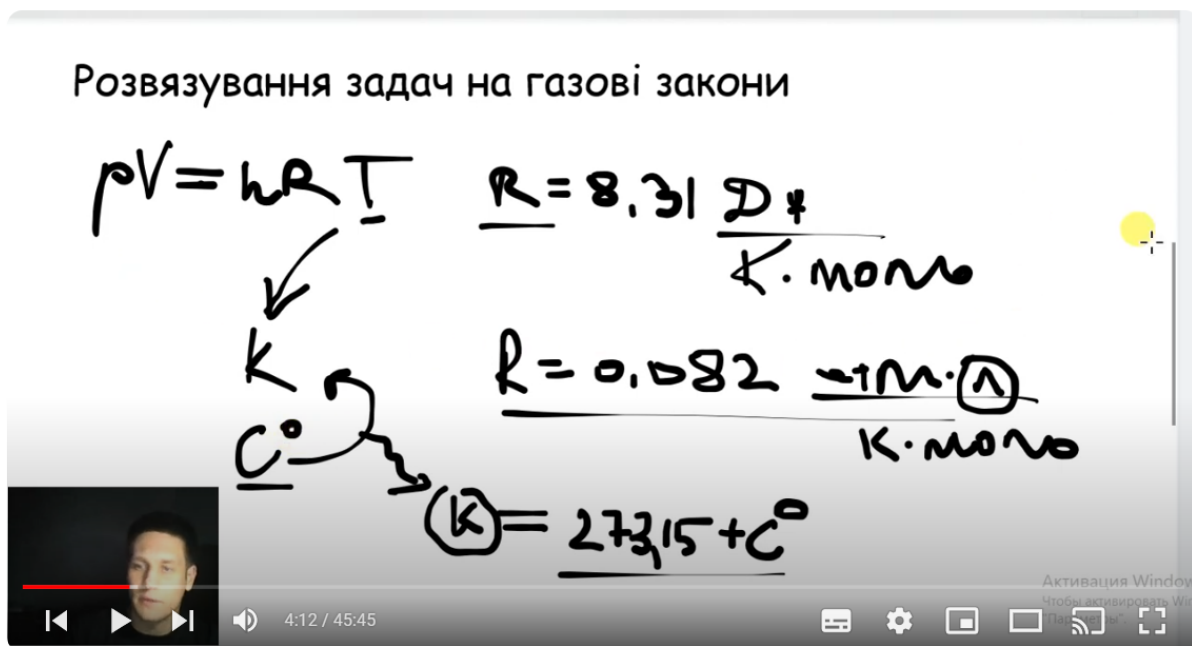 Розвязування задач на газові закони
pV = nRT
R = 8,31 Дж
K · моль
K
C°
R = 0,082 атм · л
K · моль
K = 273,15 + C°
Активация Window
Чтобы активировать Win
"Параметры".
4:12 / 45:45